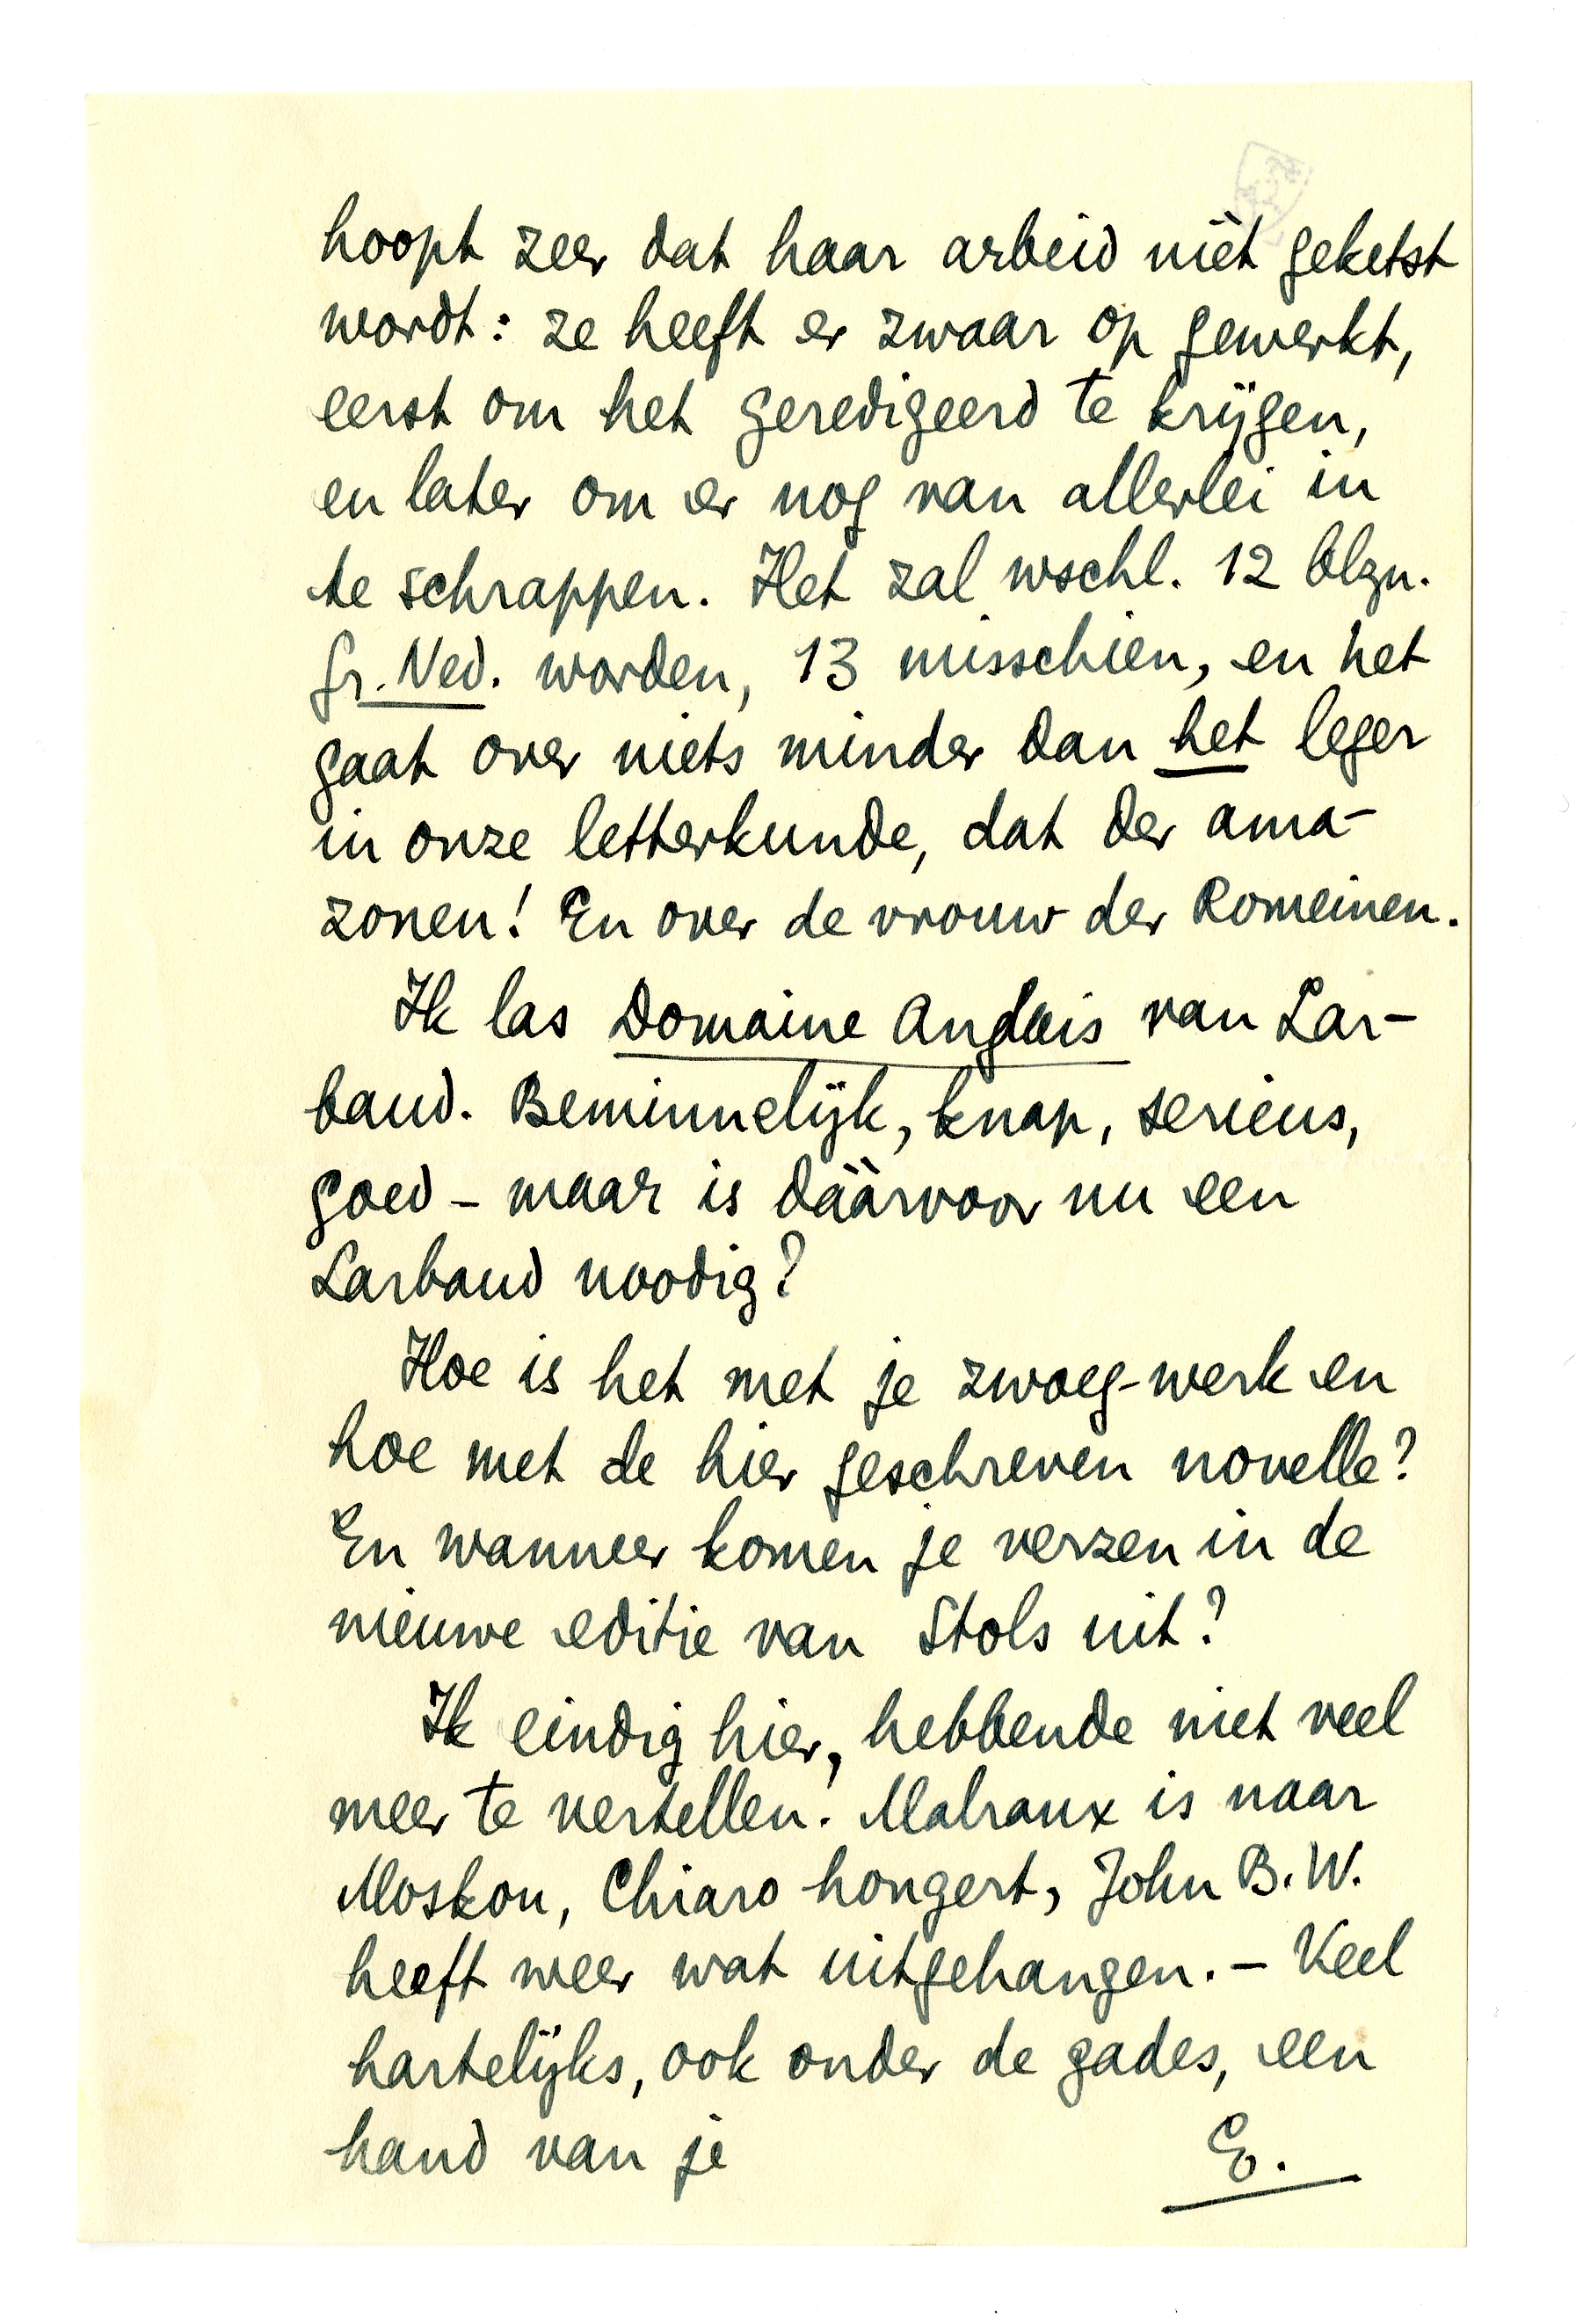 hoopt zeer dat haar arbeid nièt geketst
wordt: ze heeft er zwaar op gewerkt,
eerst om het geredigeerd te krijgen,
en later om er nog van allerlei in
te schrappen. Het zal wschl. 12 blzn.
Gr. Ned. worden, 13 misschien, en het
gaat over niets minder dan het leger
in onze letterkunde, dat der ama-
zonen! En over de vrouw der Romeinen.
Ik las Domaine Anglais van Lar-
baud. Beminnelijk, knap, serieus,
goed – maar is dààrvoor nu een
Larbaud noodig?
Hoe is het met je zwoeg-werk en
hoe met de hier geschreven novelle?
En wanneer komen je verzen in de
nieuwe editie van Stols uit?
Ik eindig hier, hebbende niet veel
meer te vertellen. Malraux is naar
Moskou, Chiaro hongert, John B.W.
heeft weer wat uitgehangen. – Veel
hartelijks, ook onder de gades, een
hand van je E.